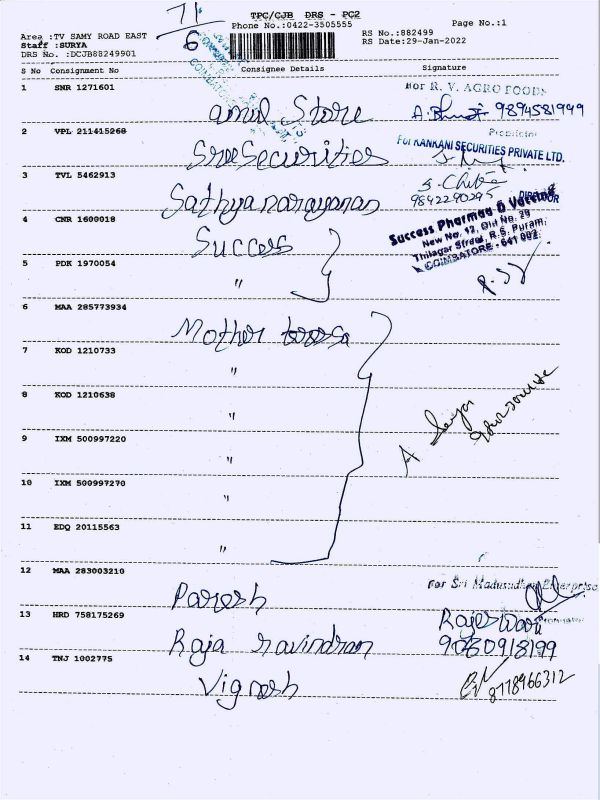 71/6
TPC/CJB DRS - PC2
Phone No.:0422-3505555
Page No.:1
Area :TV SAMY ROAD EAST
Staff :SURYA
DRS No. :DCJB88249901
RS No.:882499
RS Date:29-Jan-2022
S No Consignment No Consignee Details Signature
1 SNR 1271601 amul Store
R. V. AGRO FOODS
9894581999
2 VPL 211415268 Sree Securities
For KANKANI SECURITIES PRIVATE LTD.
3 TVL 5462913 Sathyanarayanan
9842290295 DIRECTOR
4 CNR 1600018 Success
Success Pharmaa & Vaccine
New No. 12, Old No. 29
Thilagar Street, R.S. Puram,
COIMBATORE - 641 002.
5 PDK 1970054 "
6 MAA 285773934 Mother teresa
7 KOD 1210733 "
8 KOD 1210638 "
9 IXM 500997220 "
10 IXM 500997270 "
11 EDQ 20115563 "
12 MAA 283003210 Paresh
For Sri Madusudhan Enterprise
13 HRD 758175269 Raja ravindran
Rajeswari
9080918199
14 TNJ 1002775 Vignesh
8778966312